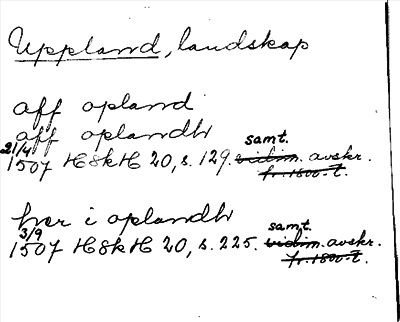 Uppland, landskap
aff opland
aff oplandh
21/4 samt.
1507 HSkH 20, s. 129. vidim. avskr.
fr. 1800-t.
her i oplandh
3/9 samt.
1507 HSkH 20, s. 225. vidim. avskr.
fr. 1800-t.